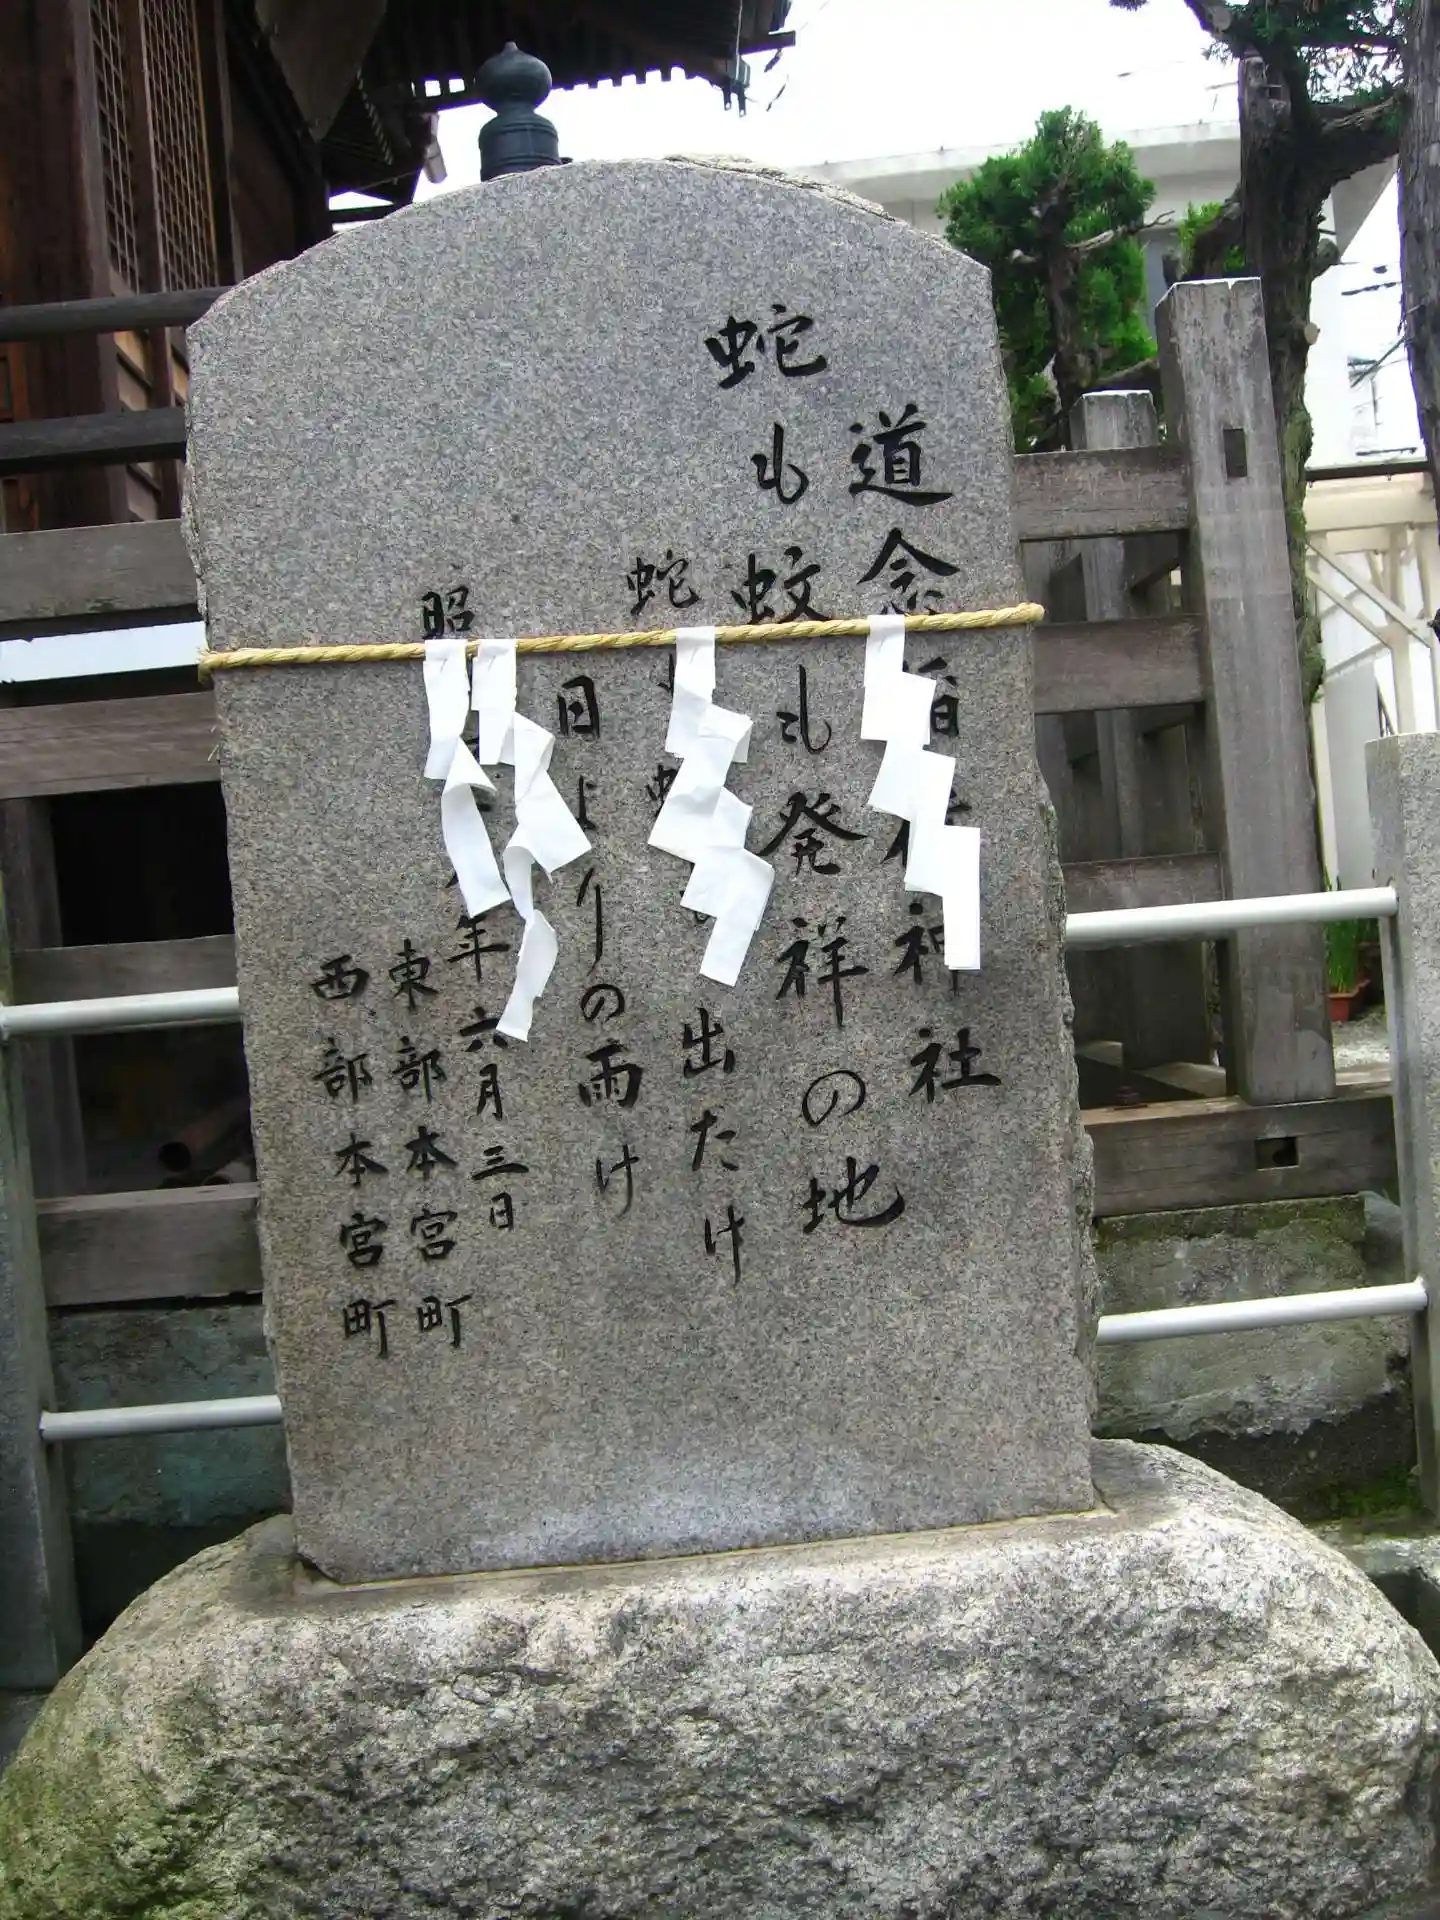 道念稲荷神社
蛇も蚊も発祥の地
蛇も蚊も出たけ
日よりの雨け
昭 年六月三日
東部本宮町
西部本宮町